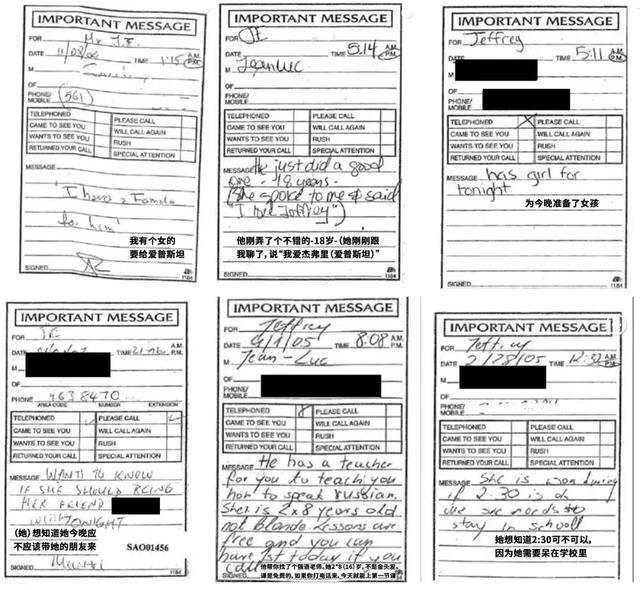 IMPORTANT MESSAGE
FOR Mr. J.E.
DATE TIME 1:15 A.M. P.M.
M
OF
PHONE/
MOBILE (561)
TELEPHONED PLEASE CALL
CAME TO SEE YOU WILL CALL AGAIN
WANTS TO SEE YOU RUSH
RETURNED YOUR CALL SPECIAL ATTENTION
MESSAGE
I have a Female
for him
我有个女的
要给爱普斯坦
SIGNED
1184
IMPORTANT MESSAGE
FOR JE
DATE TIME 5:14 A.M. P.M.
M Jean Luc
OF
PHONE/
MOBILE
TELEPHONED PLEASE CALL
CAME TO SEE YOU WILL CALL AGAIN
WANTS TO SEE YOU RUSH
RETURNED YOUR CALL SPECIAL ATTENTION
MESSAGE He just did a good
one - 18 years -
(She spoke to me & said
"I love Jeffrey")
他刚弄了个不错的-18岁-(她刚刚跟
我聊了，说“我爱杰弗里(爱普斯坦)”
SIGNED
1184
IMPORTANT MESSAGE
FOR Jeffrey
DATE TIME 5:11 A.M. P.M.
M
OF
PHONE/
MOBILE
TELEPHONED PLEASE CALL
CAME TO SEE YOU WILL CALL AGAIN
WANTS TO SEE YOU RUSH
RETURNED YOUR CALL SPECIAL ATTENTION
MESSAGE has girl for
tonight
为今晚准备了女孩
SIGNED
1184
IMPORTANT MESSAGE
FOR JE
DATE TIME A.M. P.M.
M
OF
PHONE 4638470
AREA CODE NUMBER EXTENSION
TELEPHONED PLEASE CALL
CAME TO SEE YOU WILL CALL AGAIN
WANTS TO SEE YOU RUSH
RETURNED YOUR CALL SPECIAL ATTENTION
MESSAGE WANTS TO KNOW
IF SHE SHOULD BRING
HER FRIEND
TONIGHT
(她)想知道她今晚应
不应该带她的朋友来
SAO01456
SIGNED
1184
IMPORTANT MESSAGE
FOR Jeffrey
DATE /1/05 TIME 8:08 A.M. P.M.
M Jean-Luc
OF
PHONE/
MOBILE
TELEPHONED X PLEASE CALL
CAME TO SEE YOU WILL CALL AGAIN
WANTS TO SEE YOU RUSH
RETURNED YOUR CALL SPECIAL ATTENTION
MESSAGE He has a teacher
for you to teach you
how to speak russian.
She is 2x8 years old
not blonde. Lessons are
free and you can
have 1st today if you
call
他帮你找了个俄语老师，她2*8(16)岁，不是金头发，
课是免费的，如果你打电话来，今天就能上第一节课
IMPORTANT MESSAGE
FOR Jeffrey
DATE 2/28/05 TIME 12:32 A.M. P.M.
M
OF
PHONE/
MOBILE
TELEPHONED PLEASE CALL
CAME TO SEE YOU WILL CALL AGAIN
WANTS TO SEE YOU RUSH
RETURNED YOUR CALL SPECIAL ATTENTION
MESSAGE She is wondering
if 2:30 is ok
she needs to
stay in school
她想知道2:30可不可以，
因为她需要呆在学校里
SIGNED
1184